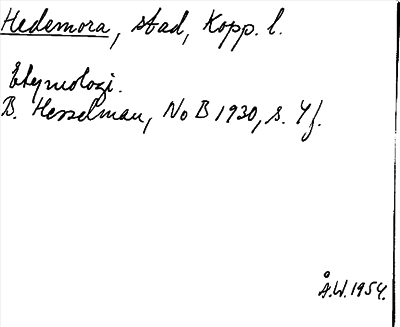 Hedemora, stad, Kopp. l.
Etymologi.
B. Hesselman, NoB 1930, s. 4 f.
Å.W. 1954.